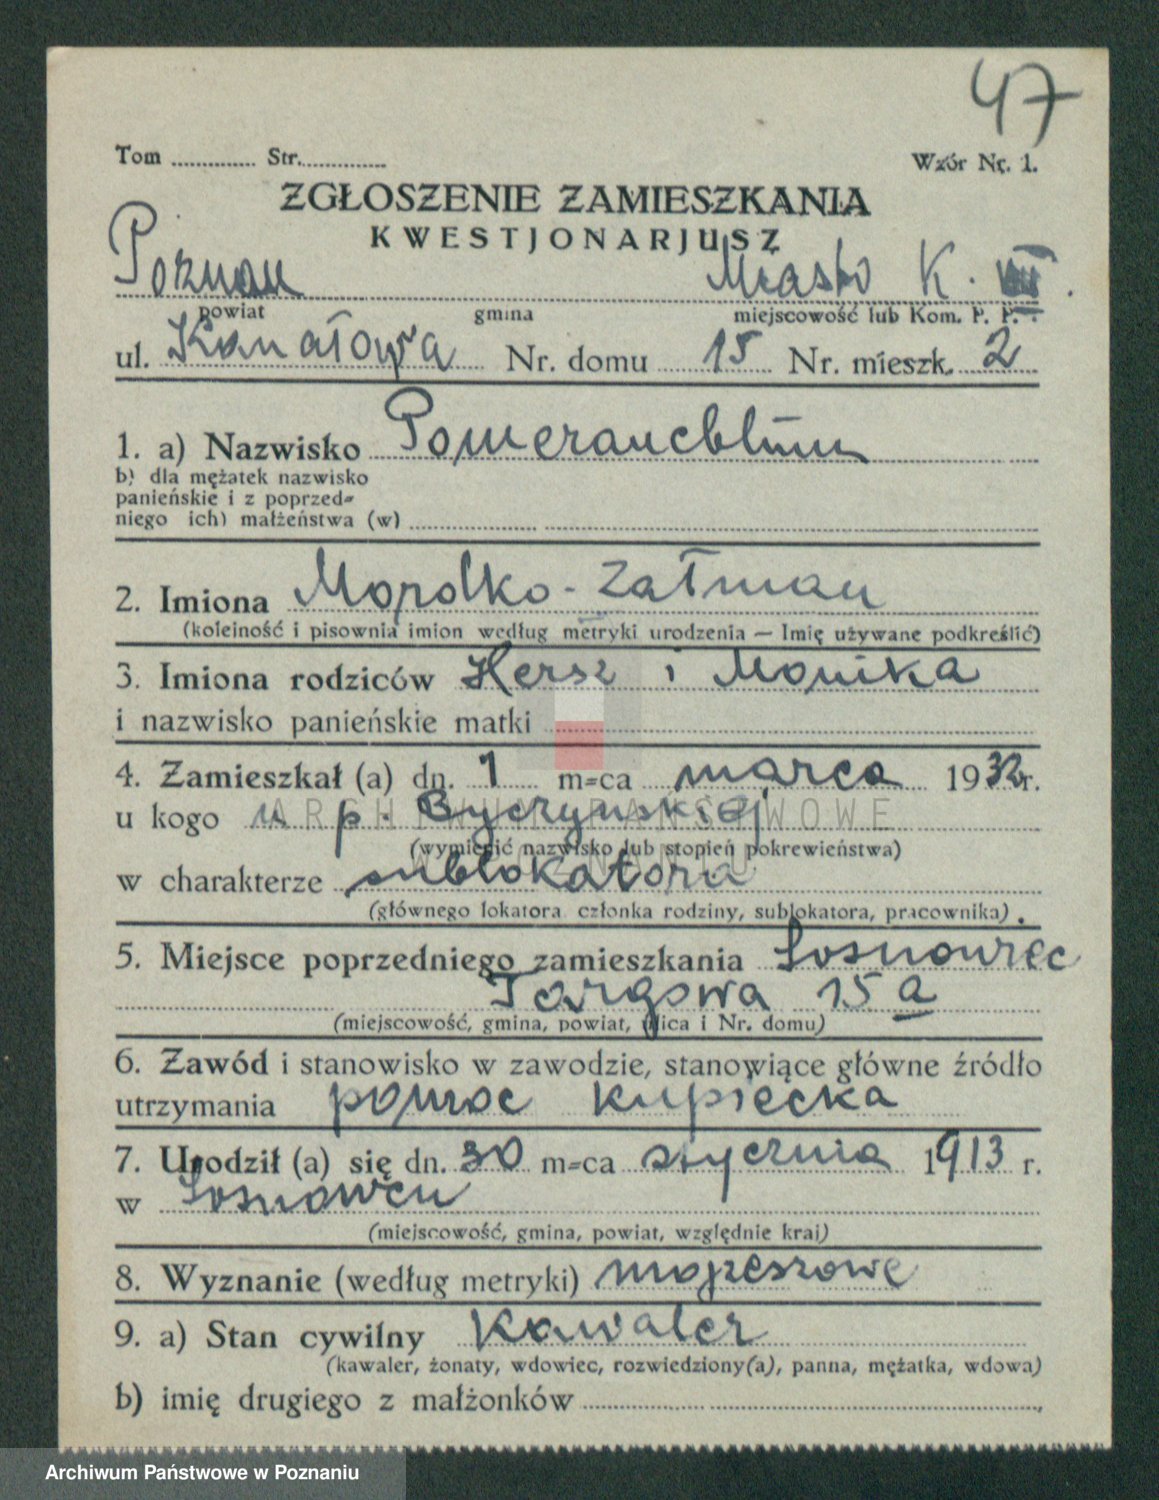 47
Tom ............ Str. ............ Wzór Nr. 1.
ZGŁOSZENIE ZAMIESZKANIA
KWESTJONARJUSZ
Poznań Miasto K. VII.
powiat gmina miejscowość lub Kom. P. P.
ul. Kanałowa Nr. domu 15 Nr. mieszk. 2
1. a) Nazwisko Pomerancblum
b) dla mężatek nazwisko
panieńskie i z poprzed-
niego ich) małżeństwa (w)
2. Imiona Mordko-Załman
(kolejność i pisownia imion według metryki urodzenia — Imię używane podkreślić)
3. Imiona rodziców Hersz i Monika
i nazwisko panieńskie matki
4. Zamieszkał (a) dn. 1 m-ca marca 1932 r.
u kogo u p. Byczyńskiej
ARCHIWUM PAŃSTWOWE
(wymienić nazwisko lub stopień pokrewieństwa)
W POZNANIU
w charakterze sublokatora
(głównego lokatora członka rodziny, sublokatora, pracownika).
5. Miejsce poprzedniego zamieszkania Sosnowiec
Targowa 15 a
(miejscowość, gmina, powiat, ulica i Nr. domu)
6. Zawód i stanowisko w zawodzie, stanowiące główne źródło
utrzymania pomoc kupiecka
7. Urodził (a) się dn. 30 m-ca stycznia 1913 r.
w Sosnowcu
(miejscowość, gmina, powiat, względnie kraj)
8. Wyznanie (według metryki) mojżeszowe
9. a) Stan cywilny Kawaler
(kawaler, żonaty, wdowiec, rozwiedziony(a), panna, mężatka, wdowa)
b) imię drugiego z małżonków
Archiwum Państwowe w Poznaniu